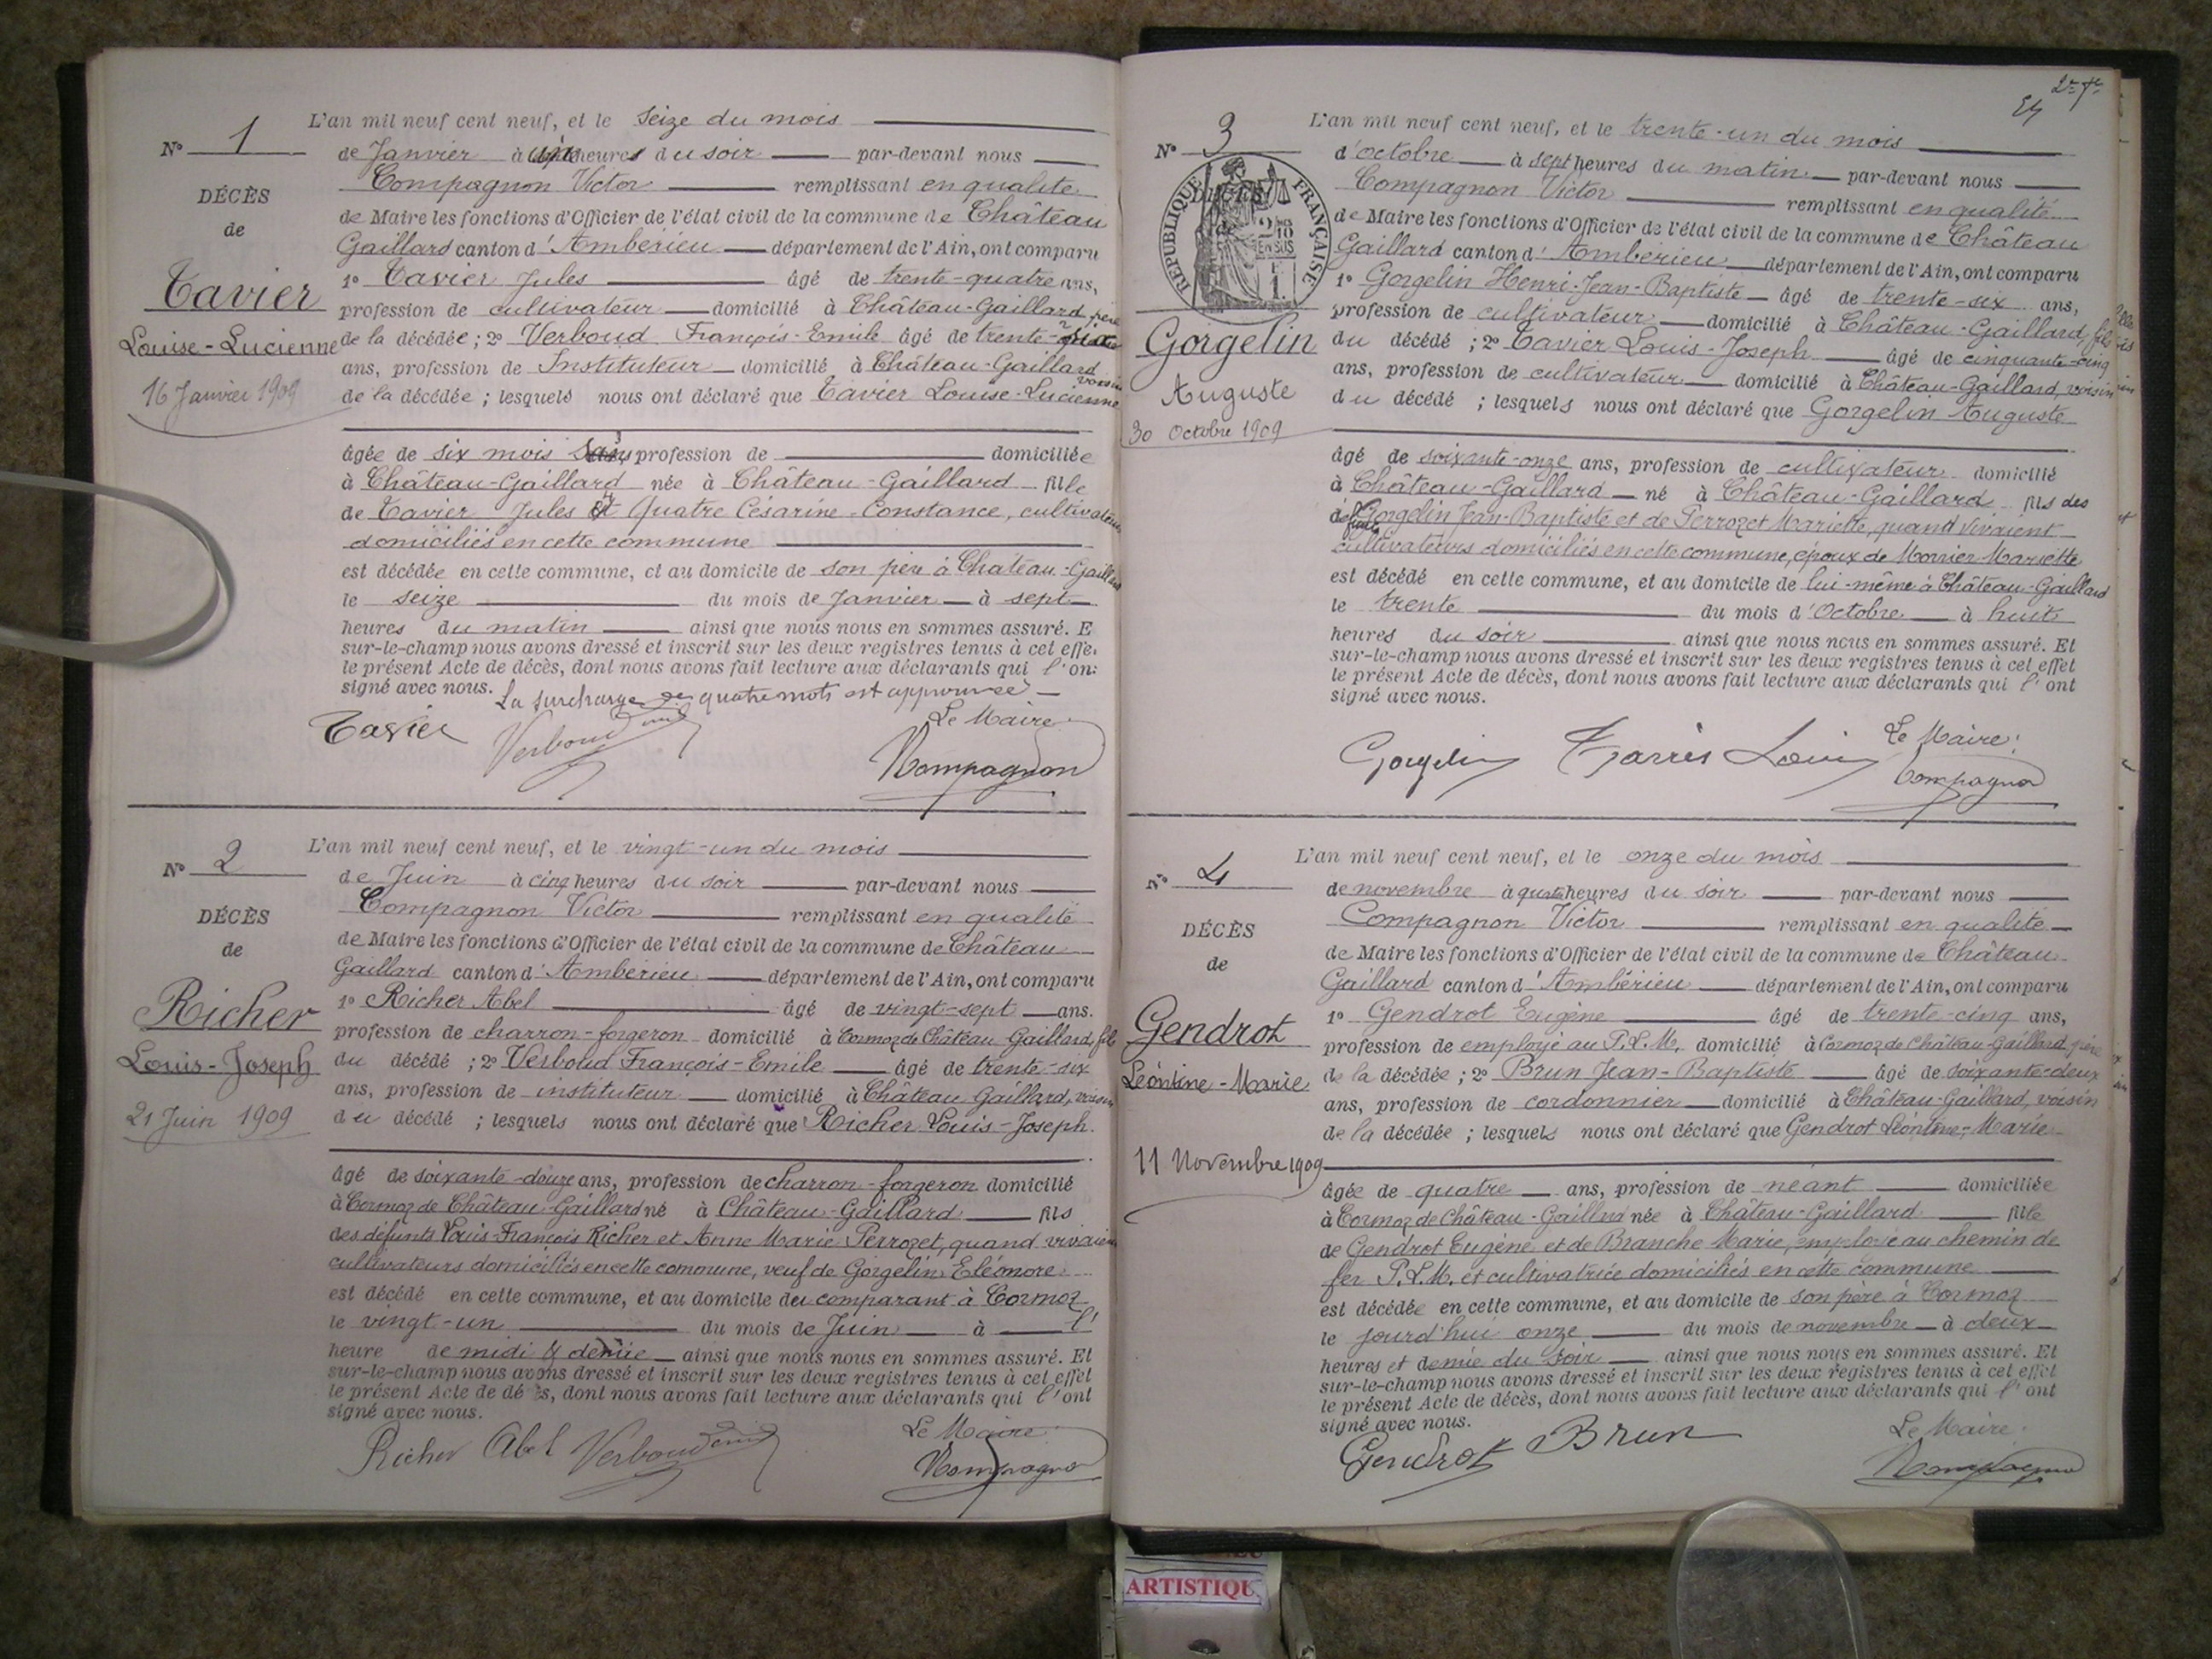 N° 1
DÉCÈS
de
Tavier
Louise-Lucienne
16 Janvier 1909
L'an mil neuf cent neuf, et le seize du mois
de Janvier à une heures du soir par-devant nous
Compagnon Victor remplissant en qualité
de Maire les fonctions d'Officier de l'état civil de la commune de Château
Gaillard canton d'Ambérieu département de l'Ain, ont comparu
1° Tavier Jules âgé de trente-quatre ans,
profession de cultivateur domicilié à Château-Gaillard, père
de la décédée ; 2° Verboud François-Emile âgé de trente-six
ans, profession de Instituteur domicilié à Château-Gaillard voisin
de la décédée ; lesquels nous ont déclaré que Tavier Louise-Lucienne
âgée de six mois sans profession de domiciliée
à Château-Gaillard née à Château-Gaillard fille
de Tavier Jules et Quatre Césarine-Constance, cultivateurs
domiciliés en cette commune
est décédée en cette commune, et au domicile de son père à Château-Gaillard
le seize du mois de Janvier à sept
heures du matin ainsi que nous nous en sommes assuré. E
sur-le-champ nous avons dressé et inscrit sur les deux registres tenus à cet effe
le présent Acte de décès, dont nous avons fait lecture aux déclarants qui l'on
signé avec nous. La surcharge de quatre mots est approuvée
Le Maire
Tavier Verboud Compagnon
N° 2
DÉCÈS
de
Richer
Louis-Joseph
21 Juin 1909
L'an mil neuf cent neuf, et le vingt-un du mois
de Juin à cinq heures du soir par-devant nous
Compagnon Victor remplissant en qualité
de Maire les fonctions d'Officier de l'état civil de la commune de Château
Gaillard canton d'Ambérieu département de l'Ain, ont comparu
1° Richer Abel âgé de vingt-sept ans.
profession de charron-forgeron domicilié à Cormoz de Château Gaillard, fils
du décédé ; 2° Verboud François-Emile âgé de trente-six
ans, profession de instituteur domicilié à Château Gaillard, voisin
du décédé ; lesquels nous ont déclaré que Richer Louis-Joseph.
âgé de soixante-douze ans, profession de charron-forgeron domicilié
à Cormoz de Château-Gaillard né à Château-Gaillard fils
des défunts Louis-François Richer et Anne Marie Perrozet, quand vivaient
cultivateurs domiciliés en cette commune, veuf de Gorgelin Eléonore
est décédé en cette commune, et au domicile du comparant à Cormoz
le vingt-un du mois de Juin à l'
heure de midi & demie ainsi que nous nous en sommes assuré. Et
sur-le-champ nous avons dressé et inscrit sur les deux registres tenus à cet effet
le présent Acte de décès, dont nous avons fait lecture aux déclarants qui l'ont
signé avec nous.
Le Maire
Richer Abel Verboud Emile Compagnon
N° 3
DÉCÈS
de
RÉPUBLIQUE FRANÇAISE
2/10 EN SUS
1 f.
Gorgelin
Auguste
30 Octobre 1909
L'an mil neuf cent neuf, et le trente-un du mois
d'octobre à sept heures du matin par-devant nous
Compagnon Victor remplissant en qualité
de Maire les fonctions d'Officier de l'état civil de la commune de Château
Gaillard canton d'Ambérieu département de l'Ain, ont comparu
1° Gorgelin Henri-Jean-Baptiste âgé de trente-six ans,
profession de cultivateur domicilié à Château-Gaillard, fils
du décédé ; 2° Tavier Louis-Joseph âgé de cinquante-cinq
ans, profession de cultivateur domicilié à Château-Gaillard, voisin
du décédé ; lesquels nous ont déclaré que Gorgelin Auguste
âgé de soixante-onze ans, profession de cultivateur domicilié
à Château-Gaillard né à Château-Gaillard fils des
défunts Gorgelin Jean-Baptiste et de Perrozet Mariette, quand vivaient
cultivateurs domiciliés en cette commune, époux de Monnier Mariette
est décédé en cette commune, et au domicile de lui-même à Château-Gaillard
le trente du mois d'Octobre à huit
heures du soir ainsi que nous nous en sommes assuré. Et
sur-le-champ nous avons dressé et inscrit sur les deux registres tenus à cet effet
le présent Acte de décès, dont nous avons fait lecture aux déclarants qui l'ont
signé avec nous.
Le Maire
Gorgelin Louis Compagnon
N° 4
DÉCÈS
de
Gendrot
Léontine-Marie
11 Novembre 1909
L'an mil neuf cent neuf, et le onze du mois
de novembre à quatre heures du soir par-devant nous
Compagnon Victor remplissant en qualité
de Maire les fonctions d'Officier de l'état civil de la commune de Château
Gaillard canton d'Ambérieu département de l'Ain, ont comparu
1° Gendrot Eugène âgé de trente-cinq ans,
profession de employé au P.L.M. domicilié à Cormoz de Château-Gaillard, père
de la décédée ; 2° Brun Jean-Baptiste âgé de soixante-deux
ans, profession de cordonnier domicilié à Château-Gaillard, voisin
de la décédée ; lesquels nous ont déclaré que Gendrot Léontine-Marie
âgée de quatre ans, profession de néant domiciliée
à Cormoz de Château-Gaillard née à Château-Gaillard fille
de Gendrot Eugène et de Branche Marie, employé au chemin de
fer P.L.M. et cultivatrice domiciliés en cette commune
est décédée en cette commune, et au domicile de son père à Cormoz
le jourd'hui onze du mois de novembre à deux
heures et demie du soir ainsi que nous nous en sommes assuré. Et
sur-le-champ nous avons dressé et inscrit sur les deux registres tenus à cet effet
le présent Acte de décès, dont nous avons fait lecture aux déclarants qui l'ont
signé avec nous.
Le Maire
Gendrot Brun Compagnon
ARTISTIQU